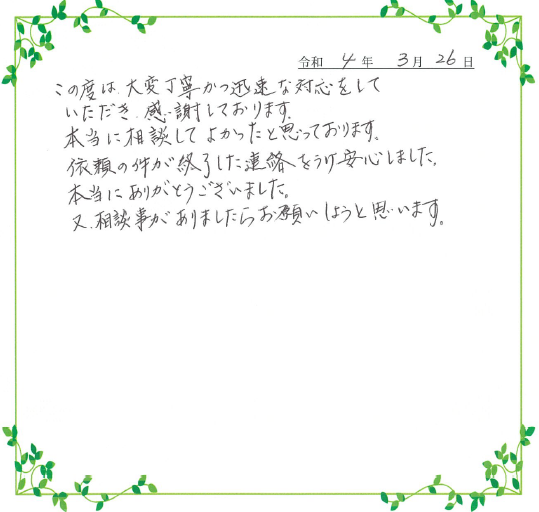 令和 4年 3月 26日
この度は、大変丁寧かつ迅速な対応をして
いただき、感謝しております。
本当に相談してよかったと思っております。
依頼の件が終了した連絡をうけ安心しました。
本当にありがとうございました。
又、相談事がありましたらお願いしようと思います。